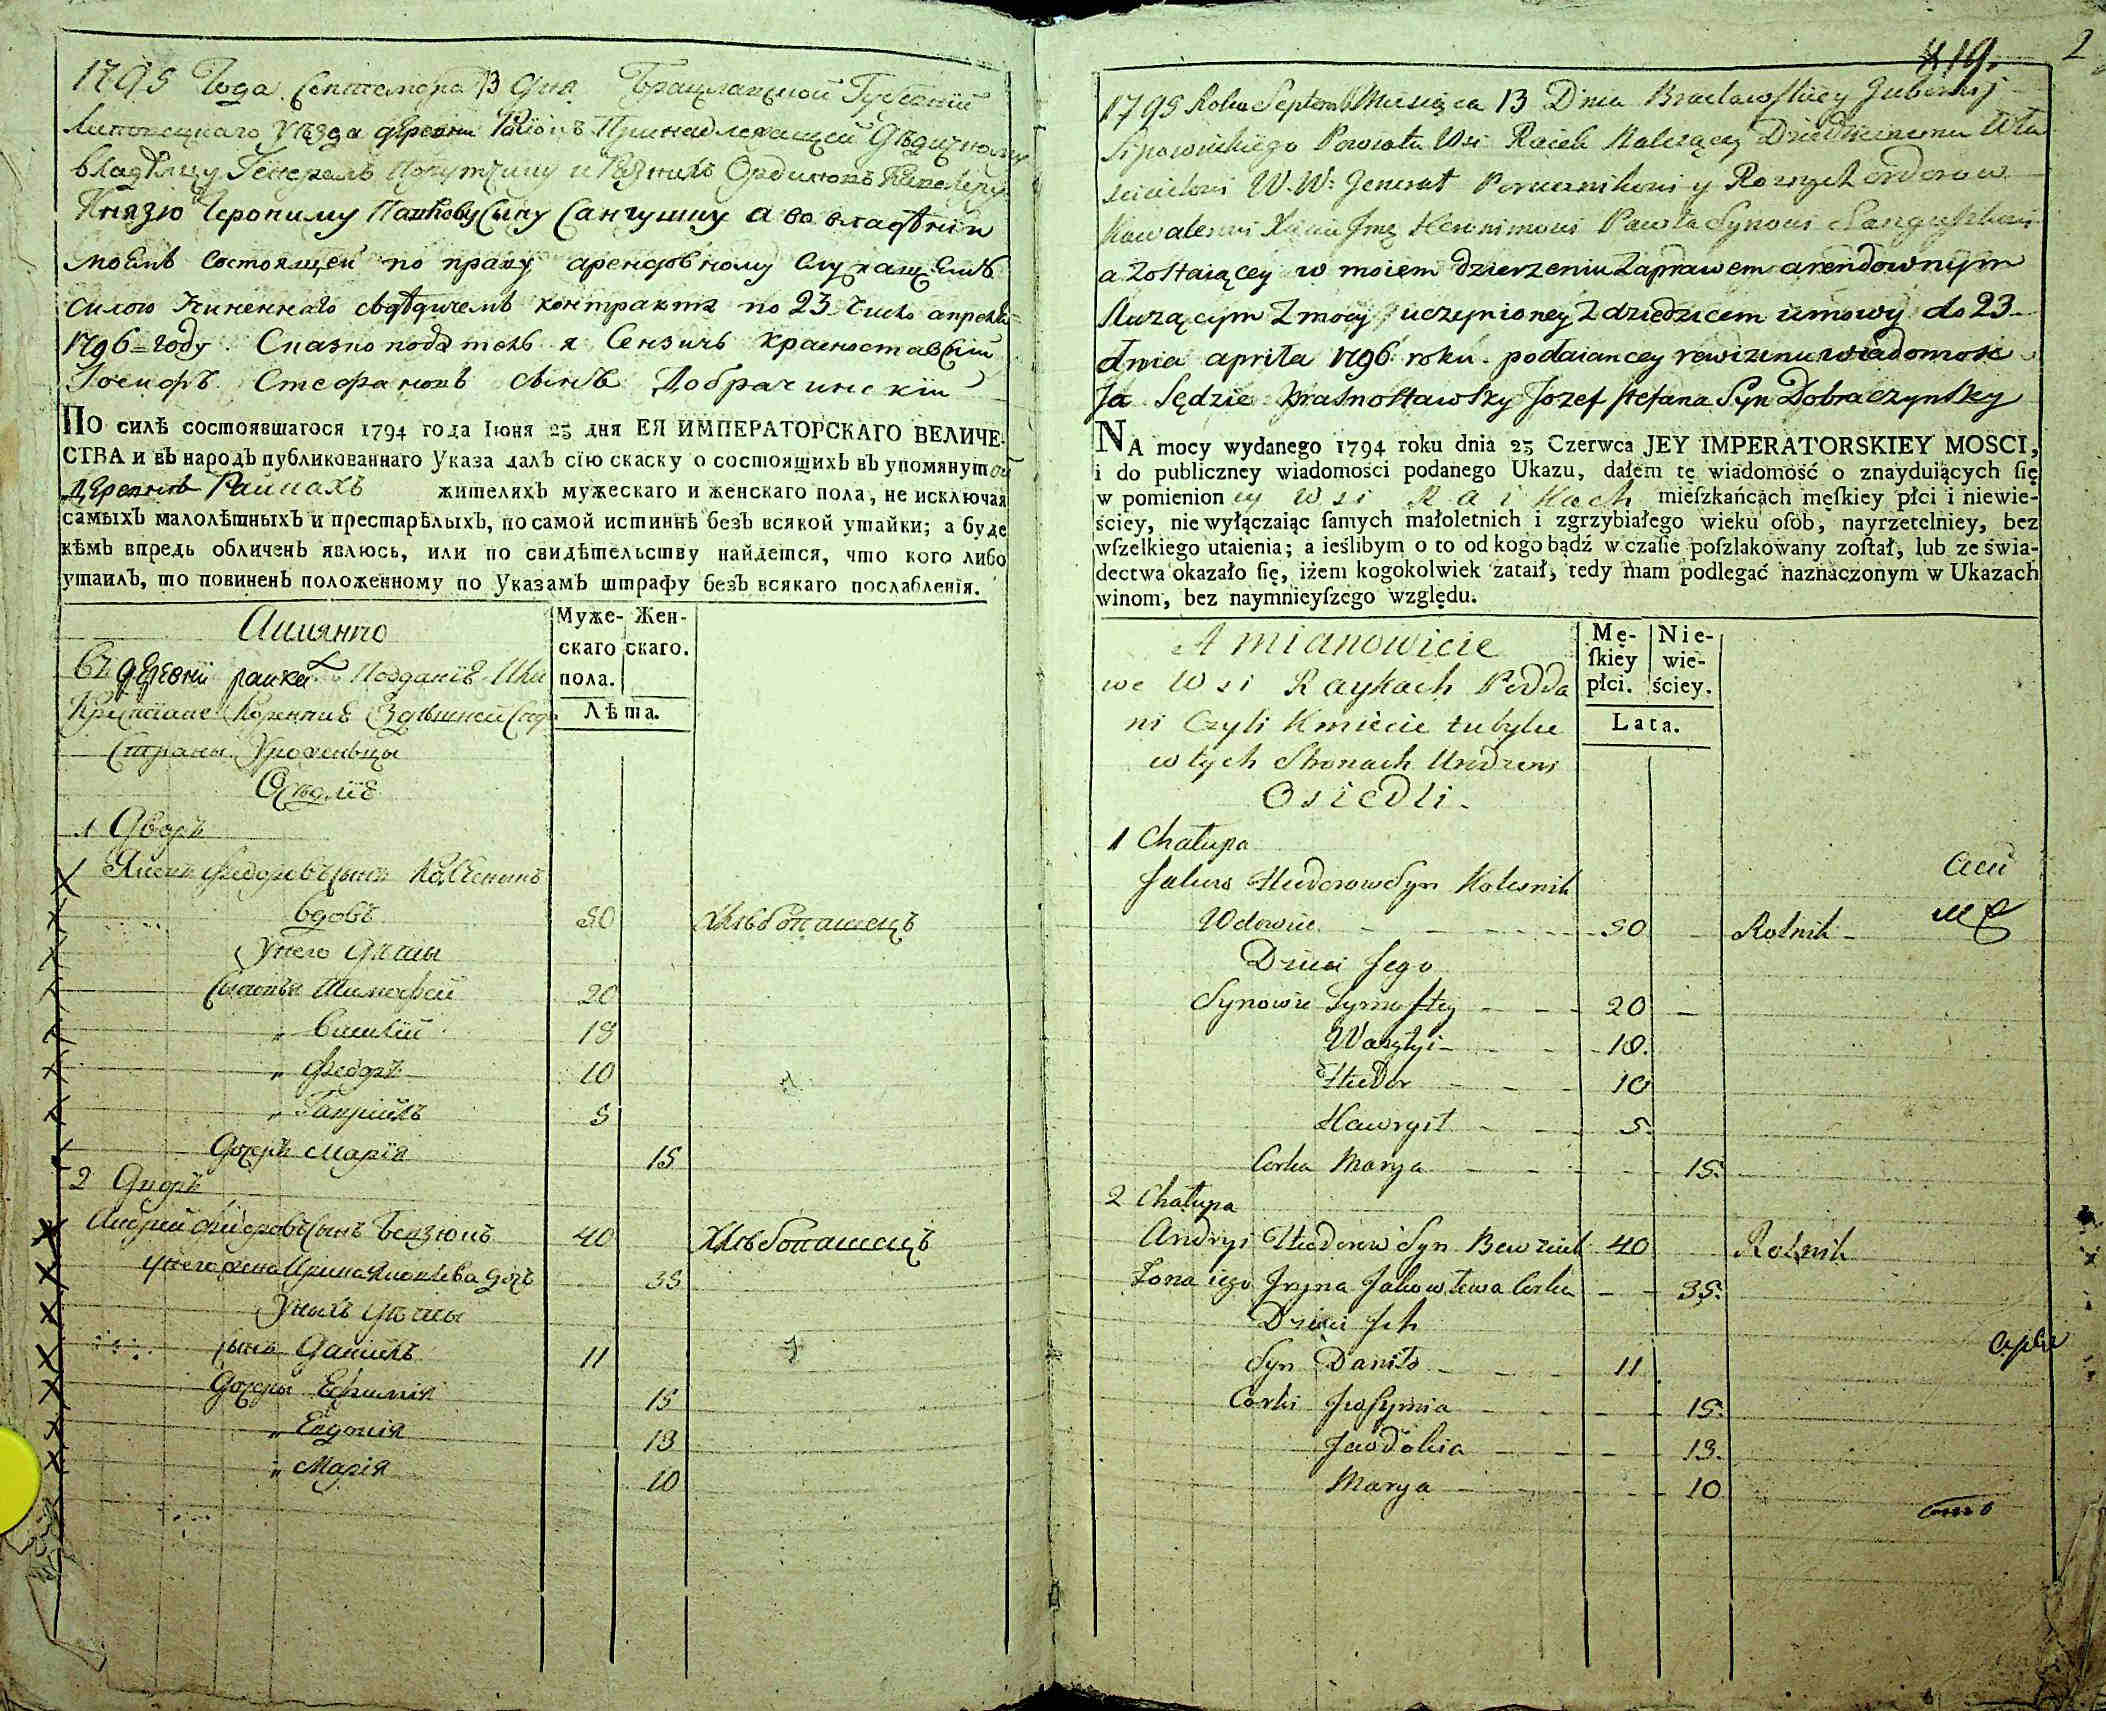 1795 Года Сентемвра 13 Дня Брацлавской Губернии
Липовецкаго уѣзда деревни Раиокъ Принадлежащей Дѣдичному
владѣлцу Генералъ Порутчику и разныхъ Ординовъ Кавалеру
Князю Иерониму Павлову Сыну Сангушку а во владѣнии
моемъ состоящей по праву арендовному служащемъ
силою Учиненнаго сдѣдичемъ контракта по 23 Число апреля
1796 году Сказкоподатель я Сензичъ Красноставскiи
Иосифъ Стефановъ сынъ Добрачинскiи
По силѣ состоявшагося 1794 года Iюня 23 дня ЕЯ ИМПЕРАТОРСКАГО ВЕЛИЧЕ-
СТВА и въ народъ публикованнаго Указа далъ сiю скаску о состоящихъ въ упомянутой
деревнѣ Раикахъ жителяхъ мужескаго и женскаго пола, не исключая
самыхъ малолѣтныхъ и престарѣлыхъ, по самой истиннѣ безъ всякой утайки; а буде
кѣмъ впредь обличенъ явлюсь, или по свидѣтельству найдется, что кого либо
утаилъ, то повиненъ положенному по Указамъ штрафу безъ всякаго послабленiя.
Аимянно
Муже-
скаго
пола.
Жен-
скаго.
Лѣта.
въ деревни раика
Крестяне Коренные Здѣшней
Страны Уроженцы
Осѣдлïе
1 Дворъ
1 Яковъ Федоровъ сынъ Колесникъ
вдовъ 50 Хлѣбопашецъ
У него Дѣти
Сыновья Тимофей 20
" Василiй 18
" Федоръ 10
" Гаврiилъ 5
Дочерь Марiя 15
2 Дворъ
Андрей Федоровъ сынъ Бевзюкъ 40 Хлѣбопашецъ
У него жена Ирина Яковлева дочь 35
У нихъ дѣти
сынъ Данiилъ 11
Дочеры Ефимiя 15
" Евдокiя 13
" Марiя 10
819.
2
1795 Roku Septemb Miesiąca 13 Dnia Bracławskiey Gubernij
Lipowieckiego Powiatu Wsi Raiek Należącey Dziedzicznemu Wła
scicielowi W. W: Generał Porucznikowi y Roznych orderow
Kawalerowi Xiciu Jmę Heronimowi Pawła Synowi Sanguszkowi
a zostaiącey w moiem dzierzeniu zaprawem arendownym
służącym z mocy uczynioney z dziedzicem umowy do 23
dnia aprila 1796 roku podaiancey rewizinu wiadomość
Ja Sędzic Krasnostawsky Jozef stefana Syn Dobraczynsky
NA mocy wydanego 1794 roku dnia 23 Czerwca JEY IMPERATORSKIEY MOSCI,
i do publiczney wiadomości podanego Ukazu, dałem tę wiadomość o znayduiących ſię
w pomienioney wsi Raikach mieſzkańcach męſkiey płci i niewie-
ściey, nie wyłączaiąc ſamych małoletnich i zgrzybiałego wieku oſób, nayrzetelniey, bez
wſzelkiego utaienia; a ieślibym o to od kogo bądź w czaſie poſzlakowany zoſtał, lub ze świa-
dectwa okazało ſię, iżem kogokolwiek zataił, tedy mam podlegać naznaczonym w Ukazach
winom, bez naymnieyſzego względu.
A mianowicie
Mę-
ſkiey
płci.
Nie-
wie-
ściey.
Lata.
we Wsi Raykach Podda
ni Czyli Kmiecie tubylce
w tych Stronach Urodzeni
Osiedli.
1 Chałupa
Jakow Fiedorow Syn Kolesnik
Wdowiec 50 Rolnik
Dzieci Jego
Synowie Tymofiey 20
Waszłyi 18.
Fiedor 10
Hawryił 5.
Corka Marya 15.
2 Chałupa
Andryi Fiedorow Syn Bewziuk 40 Rolnik
Zona iego Iryna Jakowlewa Corka 35.
Dzieci Jch
Syn Daniło 11
Corki Jeofymia 15.
Jewdokia 13.
Marya 10